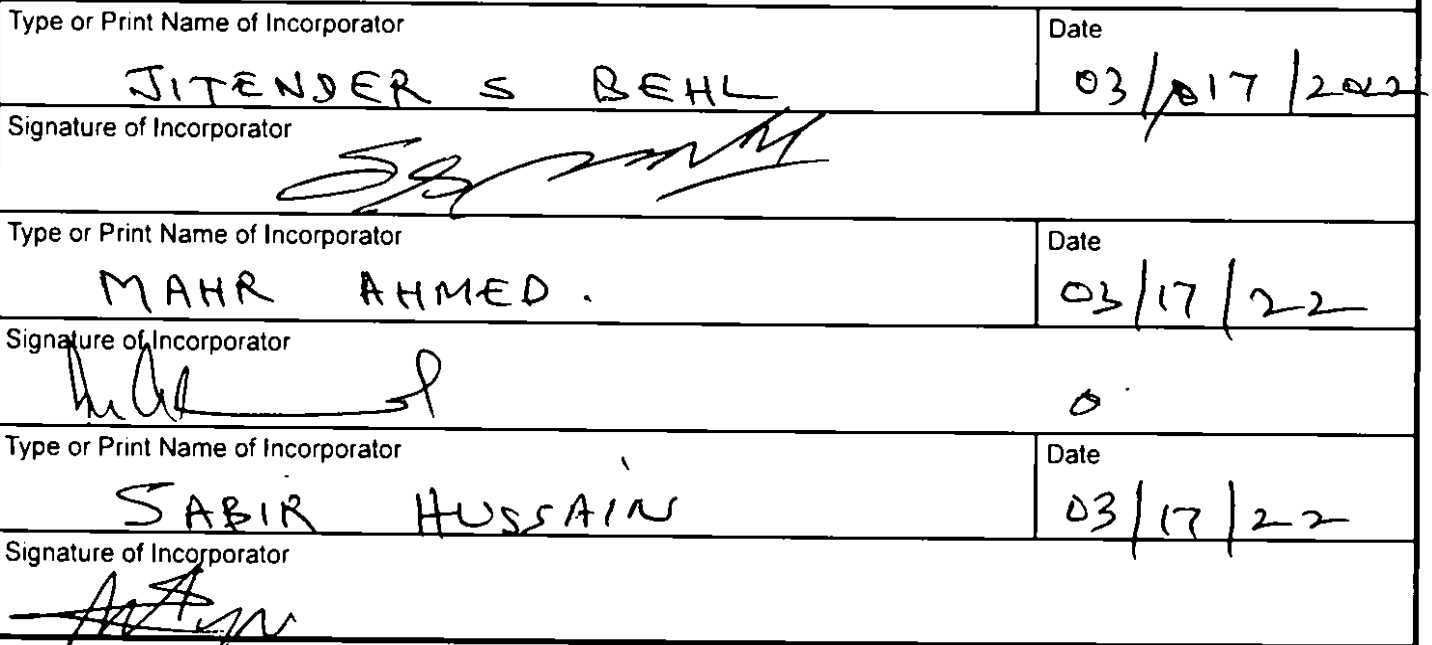 Type or Print Name of Incorporator Date
JITENDER S BEHL 03/17/2022
Signature of Incorporator
Type or Print Name of Incorporator Date
MAHR AHMED. 03/17/22
Signature of Incorporator
Type or Print Name of Incorporator Date
SABIR HUSSAIN 03/17/22
Signature of Incorporator